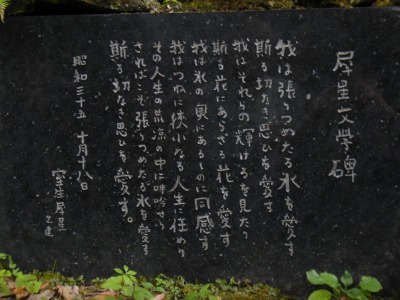 犀星文學碑
我は張りつめたる氷を愛す
斯る切なき思ひを愛す
我はそれらの輝けるを見たり
斯る花にあらざる花を愛す
我は氷の奥にあるものに同感す
我はつねに狭小なる人生に住めり
その人生の荒涼の中に呻吟せり
さればこそ張りつめたる氷を愛す
斯る切なき思ひを愛す。
昭和三十五 十月十八日
室生犀星
之建